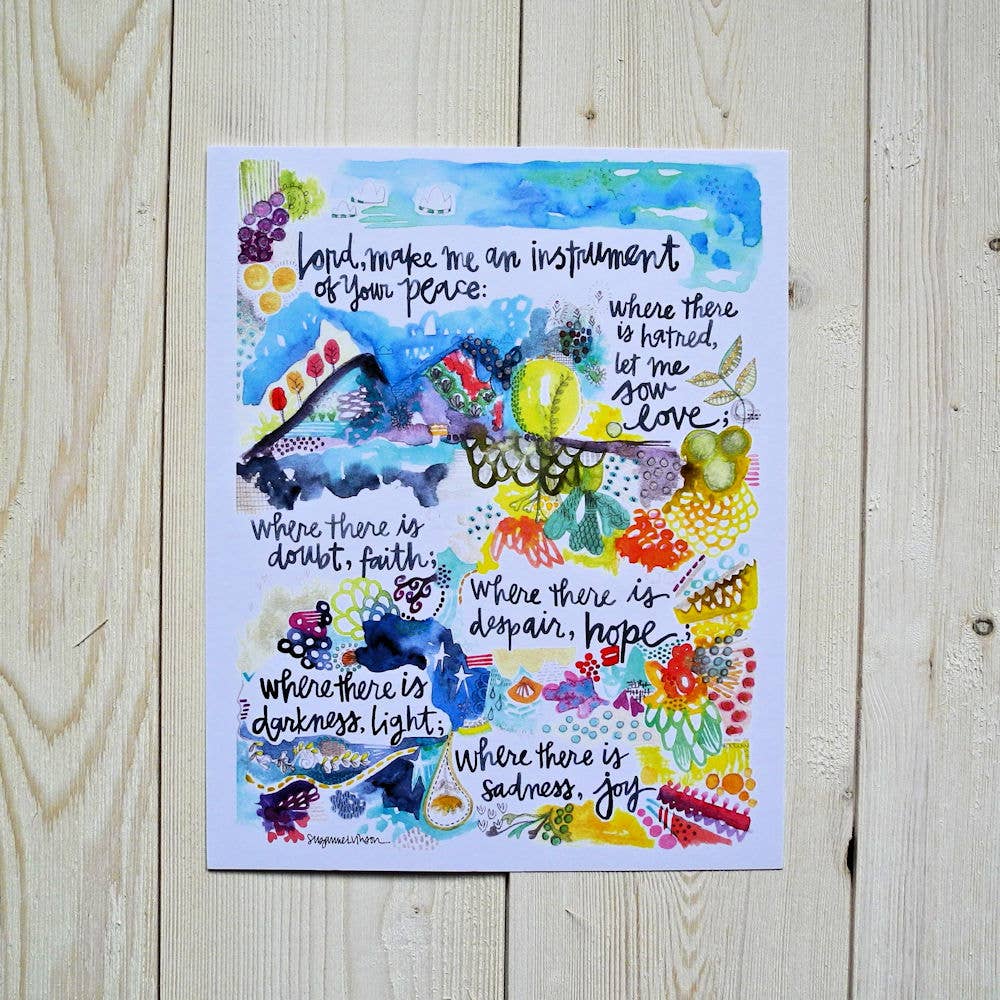 Lord, make me an instrument
of your peace:
where there
is hatred,
let me
sow
love;
where there is
doubt, faith;
where there is
despair, hope;
where there is
darkness, light;
where there is
sadness, joy
Suzanne Vinson